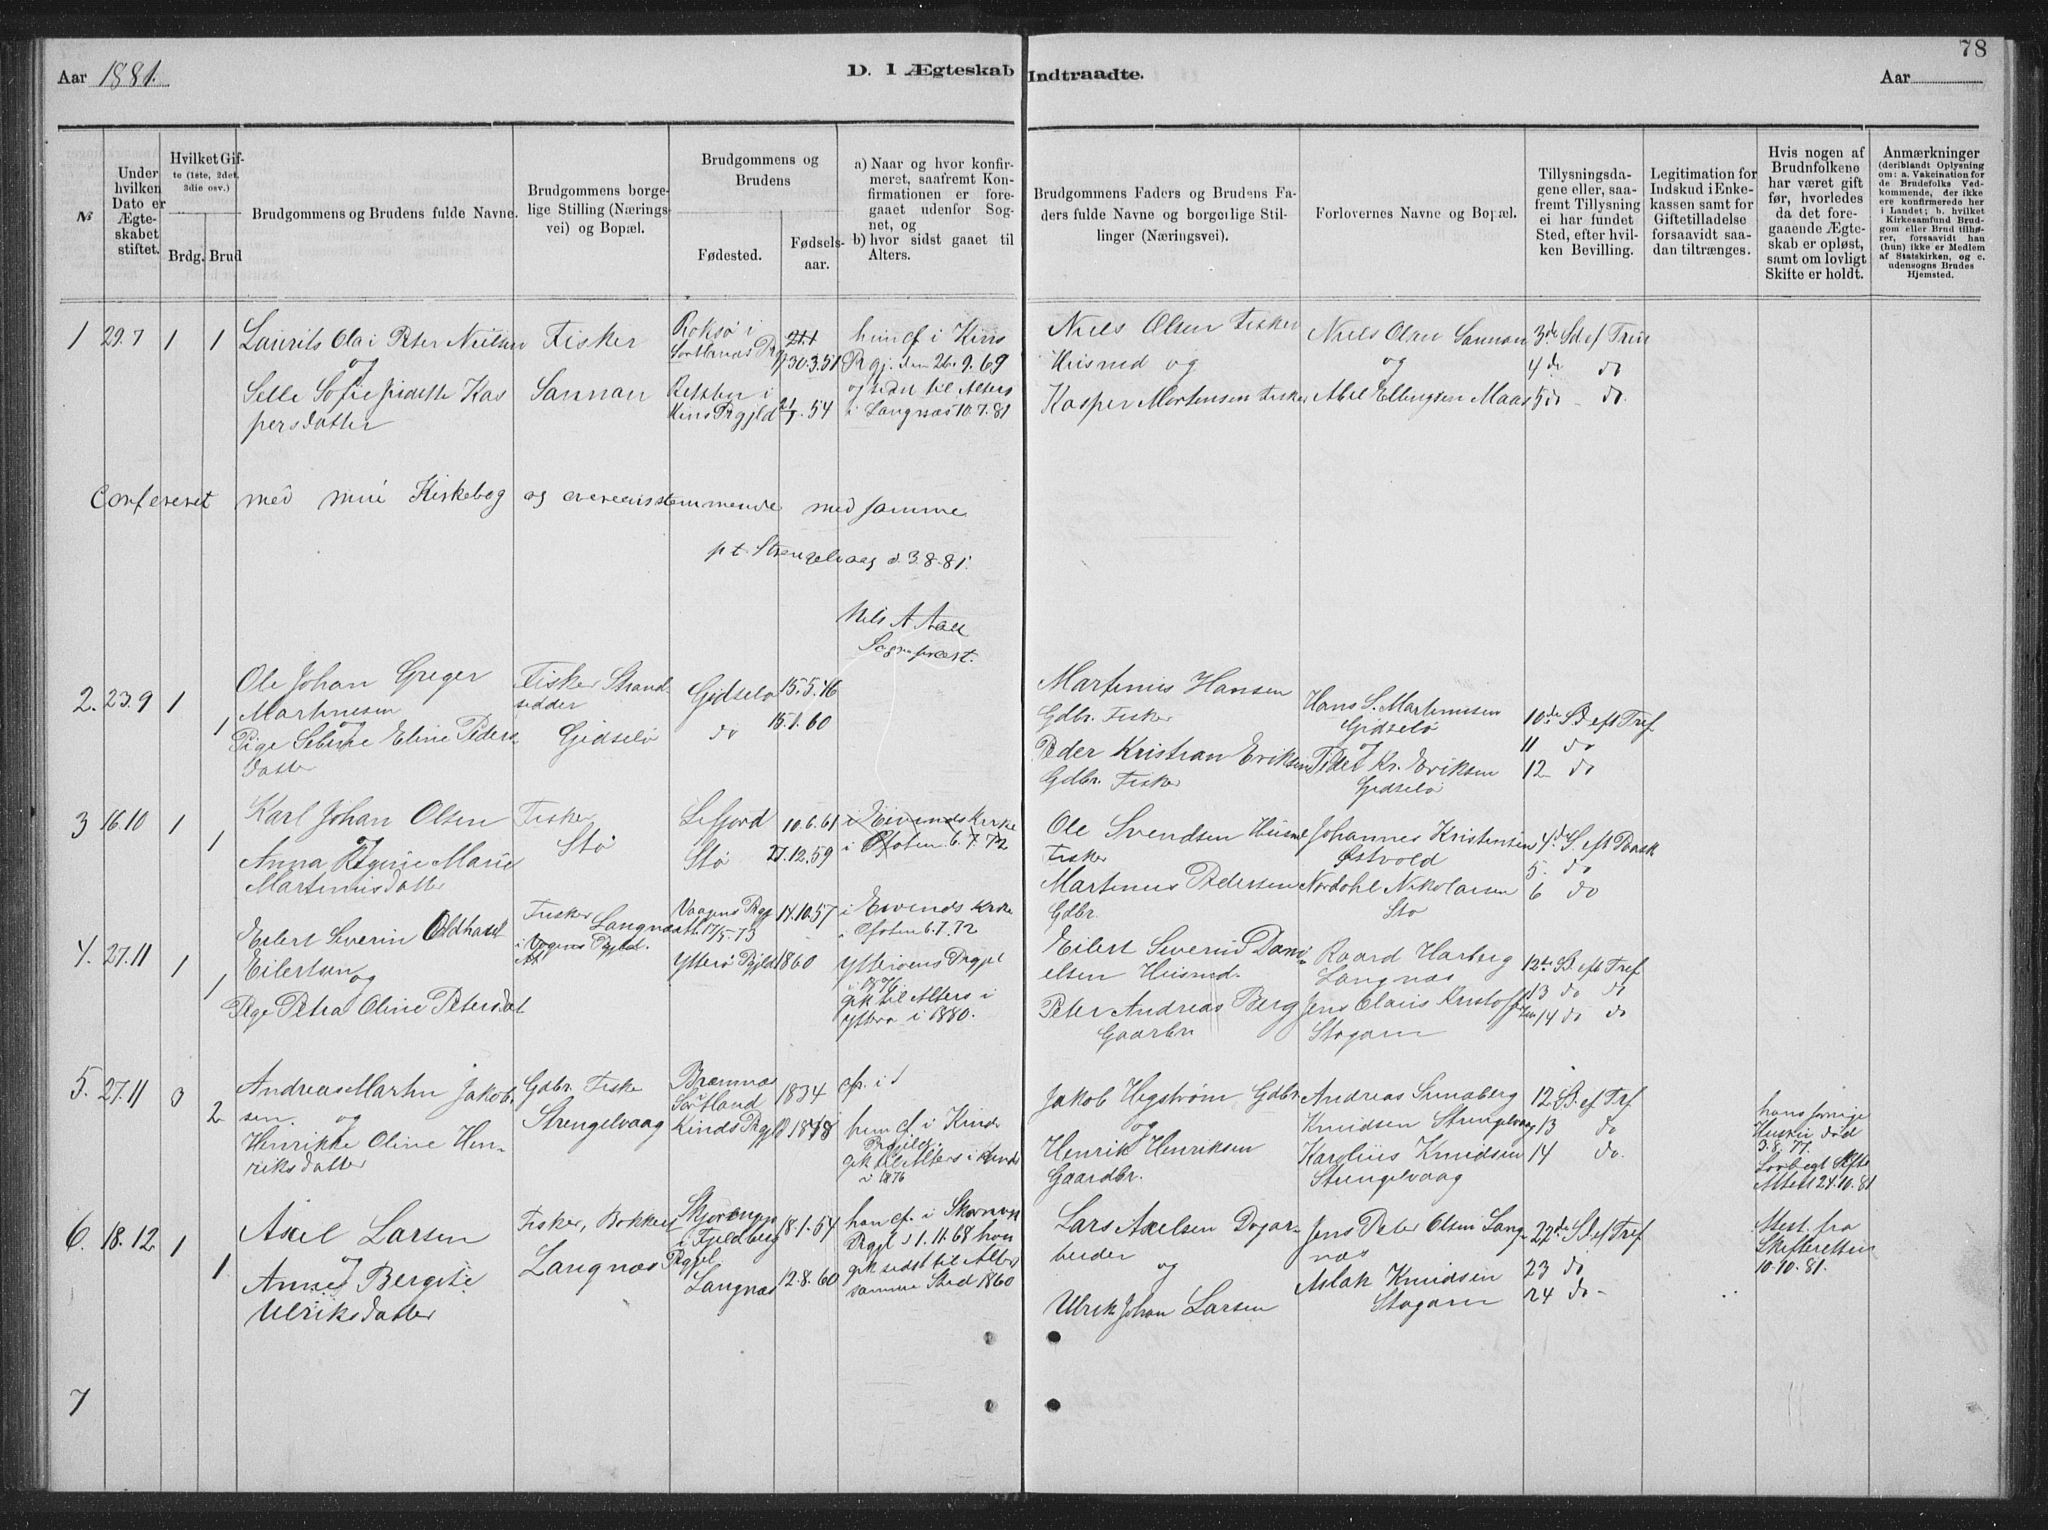 78
Aar 1881.
D. I Ægteskab Indtraadte.
Aar
№
Under hvilken Dato er Ægteskabet stiftet.
Hvilket Gifte (1ste, 2det, 3die osv.)
Brdg.
Brud
Brudgommens og Brudens fulde Navne.
Brudgommens borgelige Stilling (Næringsvei) og Bopæl.
Brudgommens og Brudens
Fødested.
Fødselsaar.
a) Naar og hvor konfirmeret, saafremt Konfirmationen er foregaaet udenfor Sognet, og
b) hvor sidst gaaet til Alters.
Brudgommens Faders og Brudens Faders fulde Navne og borgerlige Stillinger (Næringsvei).
Forlovernes Navne og Bopæl.
Tillysningsdagene eller, saafremt Tillysning ei har fundet Sted, efter hvilken Bevilling.
Legitimation for Indskud i Enkekassen samt for Giftetilladelse forsaavidt saadan tiltrænges.
Hvis nogen af Brudnfolkene har været gift før, hvorledes da det foregaaende Ægteskab er opløst, samt om lovligt Skifte er holdt.
Anmærkninger
(deriblandt Oplysning om: a. Vakcination for de Brudefolks Vedkommende, der ikke ere konfirmerede her i Landet; b. hvilket Kirkesamfund Brudgom eller Brud tilhører, forsaavidt han (hun) ikke er Medlem af Statskirken, og c. udensogns Brudes Hjemsted.
1 29.7 1 1
Laurits Olai Peter Nielsen
og
Kaspersdatter
Fisker
Sannan
Roksø i
Sortlands Pgj
30.3.51
Kins Prgjld
54
hun cf i Kins
Prgj. den 26.9.69
og sidst til Alters
i Langnæs 10.7.81
Niels Olsen Fisker
Husmd og
Kasper Mortensen Fisker
Niels Olsen Sannan
og
Abel Ellingsen Maas
3de Sd ef Trin
4 do do
5 do do.
Confereret med min Kirkebog og overeensstemmende med samme
p t. Strengelvaag d. 3.8.81.
Nils A Aall
Sognepræst.
2. 23.9 1
1
Ole Johan Greger
Martinusen
og
Pige Eline Peders-
datter
Fisker Strand-
sidder
Gidselø
Gidselø
do
15.5.46
15.1.60
Martinus Hansen
Gdbr. Fisker
Peder Kristian Eriksen
Gdbr. Fisker
Hans S. Martinusen
Gidselø
og
Peder Kr. Eriksen
Gidselø
10de Sd eft Tref
11 do
12 do
3 16.10 1
1
Karl Johan Olsen
og
Anna Regine Marie
Martinusdatter
Fisker
Stø
Lefjord
Stø
10.6.61
27.12.59
i Eivends Kirke
i Ofoten 6.7.72
Ole Svendsen Husmd
Fisker
Martinus Pedersen
Gdbr.
Johannes Kristensen
Østvold
Nordahl Nikolaisen
Stø
4de S. eft Paask
5. do
6 do
4. 27.11 1
1
Eilert Severin Oldhavel
Eilertsen
og
Pige Petra Oline Petersdat
Fisker Langnæs
i Vogens Pgjld.
Vaagens Pgj
att. 17/5 73
Ytterø Pgjld
14.10.57
1860
i Eivends Kirke
i Ofoten 6.7.72
Ytterøens Prgjel
i 1876
gik til Alters i
Ytterø i 1880.
Eilert Severin Dani-
elsen Husmd.
Peter Andreas Berg
Gaarbr
Raard Harberg
Langnæs
Jens Claus Kristoffersen
Stogarn
12te S. eft Tref
13 do do
14 do do
5. 27.11 3
2
Andreas Martin Jakob-
sen. og
Henrikke Oline Hen-
riksdatter
Gdbr. Fiske
Strengelvaag
Bremnæs
Sortland
Kinds Prgjld
1834
cf. i
hun cf i Kinds
Prgjld.
gik til Alters i Kinds
i 1876
Jakob Hegstrøm Gdbr
og
Henrik Henriksen
Gaardbr.
Andreas Sundberg
Knudsen Strengelvaag
Karolius Knudsen
Strengelvaag
12 S. ef Trf
13 do
14 do.
hans forrige
Hustru død
3.8.77.
Lovbegt Skifte
Attest 24.10.81
6. 18.12 1
1
Axel Larsen
og
Anne Bergite
Ulriksdatter
Fisker,
Langnæs
i Fjeldberg
Prgjel
Langnæs
18.1.54
12.8.60
han cf. i
Prgjl d 1.11.68 hun
gik sidst til Alters
samme Sted 1860
Lars Axelsen Dagar-
beider
og
Ulrik Johan Larsen
Jens Peter Olsen Lang-
næs
Aslak Knudsen
Stogarn
22de Sd ef Tref
23 do
24 do-
Attest. fra
Skifteretten
10.10.81.
7